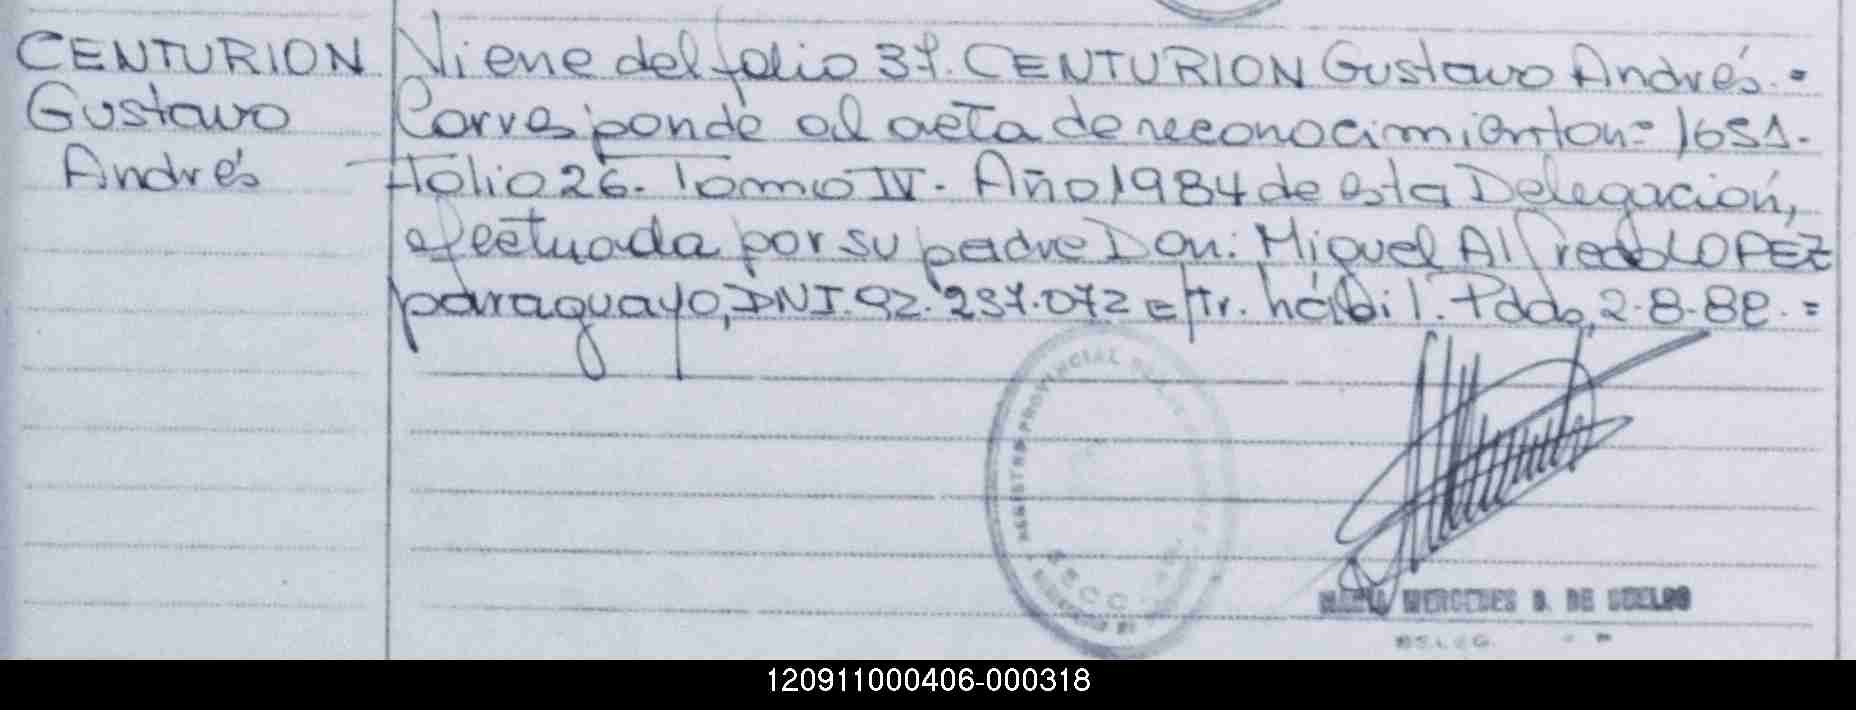 CENTURION
Gustavo
Andrés
Viene del folio 37. CENTURION Gustavo Andrés.=
Corresponde al acta de reconocimiento n= 1651.
Folio 26. Tomo IV. Año 1984 de esta Delegación,
efectuada por su padre Don: Miguel Alfredo LOPEZ
paraguayo, DNI. 92.237.072 e/tr. hábil. Pdas, 2-8-88.=
REGISTRO PROVINCIAL
MERCEDES DE
120911000406-000318